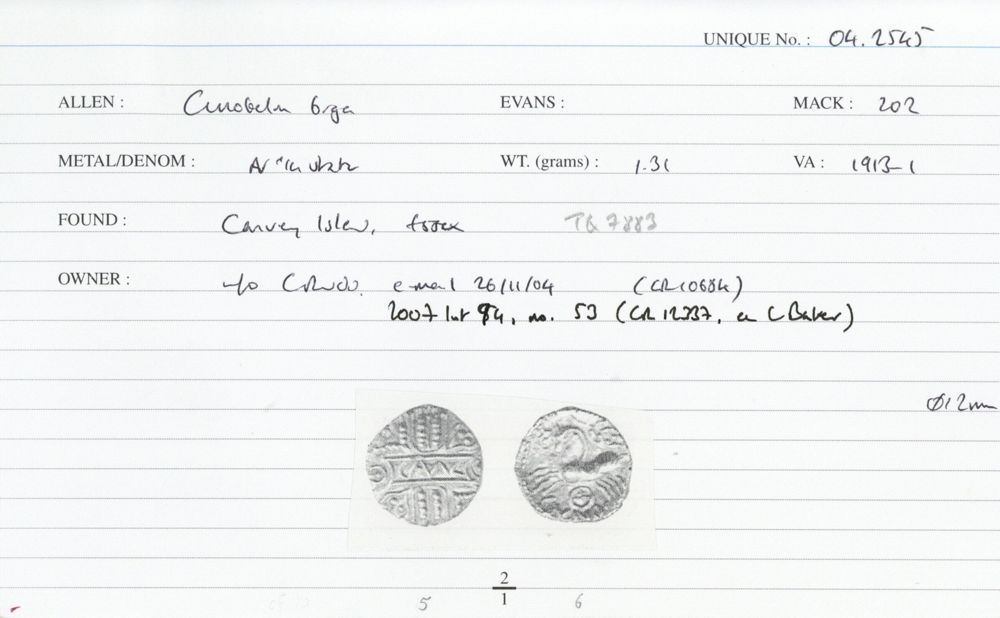 UNIQUE No. : 04.2545
ALLEN : Cunobelin EVANS : MACK : 202
METAL/DENOM : AV WT. (grams) : 1.31 VA : 1913-1
FOUND : Canvey Island, Essex TQ 7883
OWNER : e-mail 26/11/04 (CR10684)
2007 lot 94, no. 53 (CR 12337, C Baker)
Ø12mm
CAVN
2
1
5 6